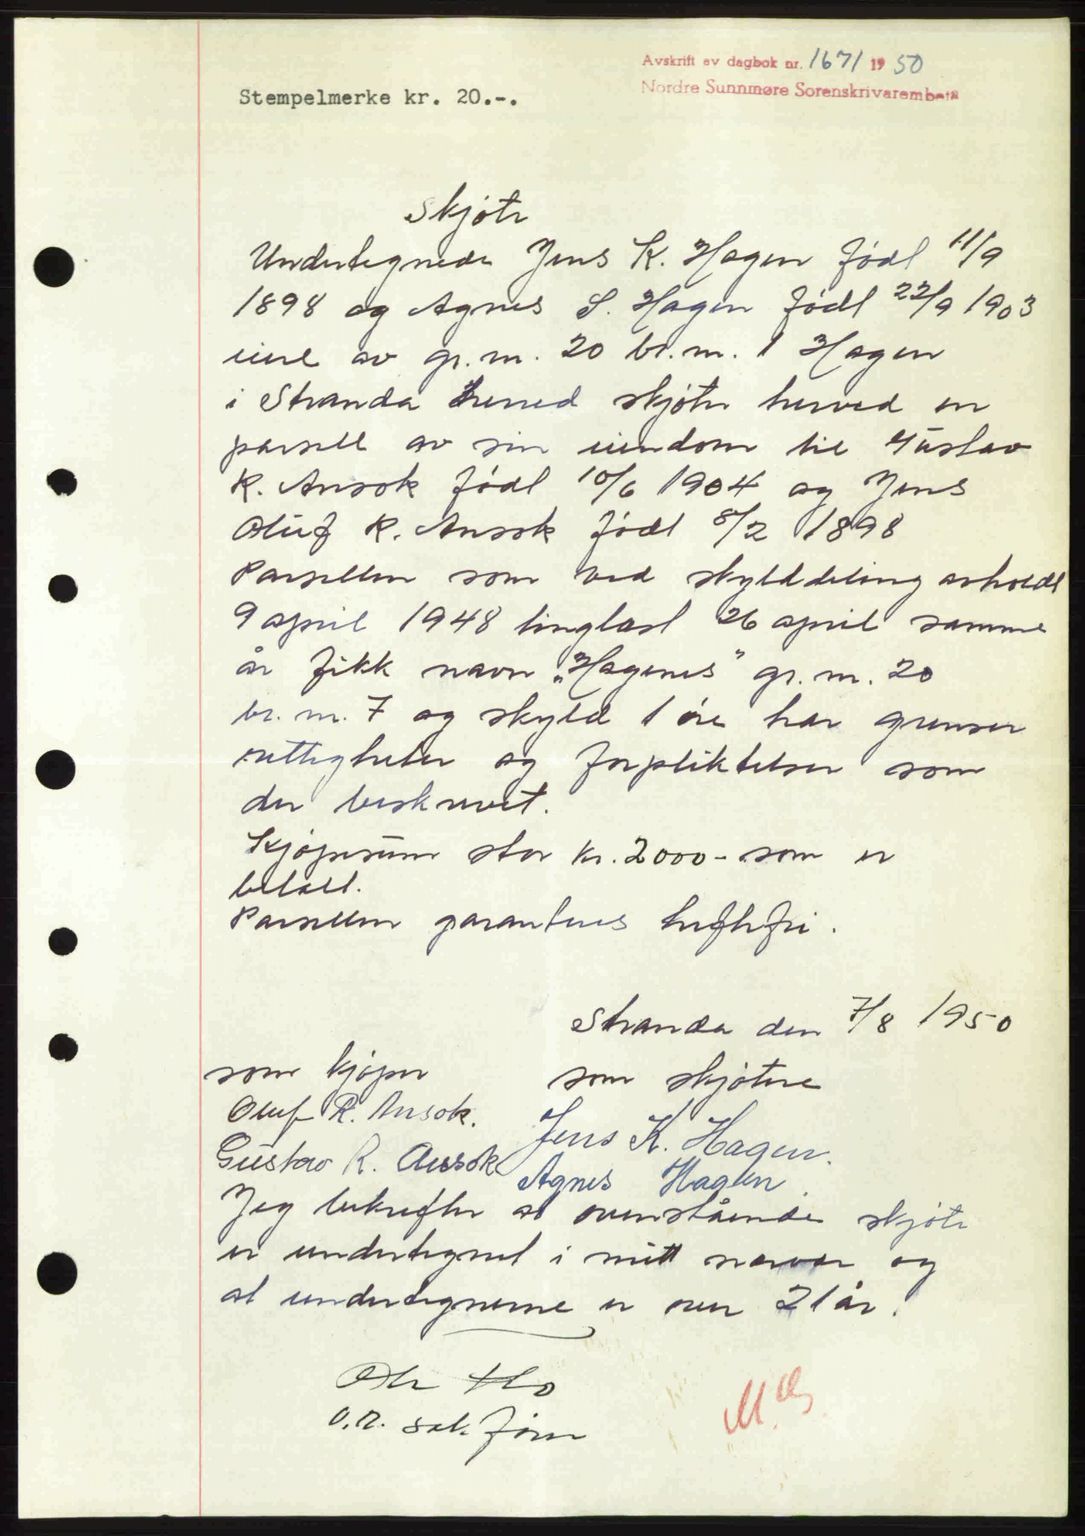 Avskrift av dagbok nr. 1671 1950
Nordre Sunnmøre Sorenskrivarembete
Stempelmerke kr. 20.-.
Skjøte
Undertegnede Jens K. Hagen født 11/9
1898 og Agnes S. Hagen født 22/9 1903
eiere av gr.nr. 20 br.nr. 1 Hagen
i Stranda herred skjøter herved en
parsell av sin eiendom til Gustav
R. Ansok født 10/6 1904 og Jens
Oluf R. Ansok født 8/2 1898
Parsellen som ved skylddeling avholdt
9 april 1948 tinglest 26 april samme
år fikk navn „Hagenes” gr.nr. 20
br.nr. 7 og skyld 1 øre har grenser
rettigheter og forpliktelser som
der beskrevet.
Kjøpesum stor kr. 2000- som er
betalt.
Parsellen garanteres heftefri.
Stranda den 7/8 1950
som kjøper som skjøtere
Oluf R. Ansok. Jens K. Hagen.
Gustav R. Ansok Agnes Hagen.
Jeg bekrefter at ovenstående skjøte
er undertegnet i mitt nærvær og
at undertegnerne er over 21 år.
o.r. sak.fører